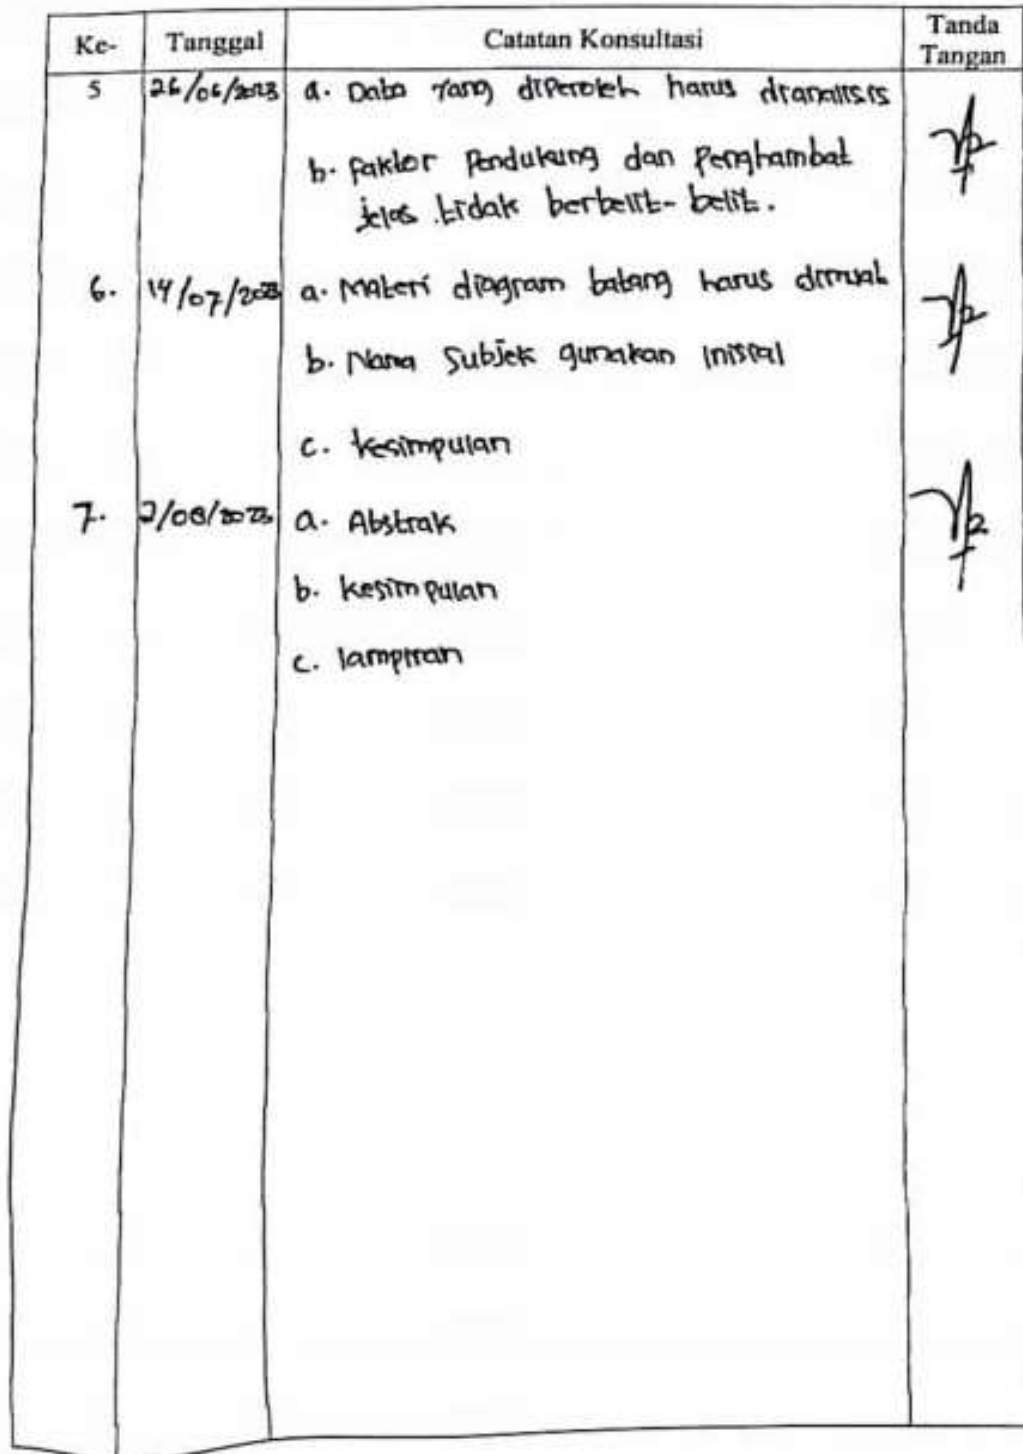 Ke- Tanggal Catatan Konsultasi Tanda Tangan
5 26/06/2023 a. Data yang diperoleh harus dianalisis
b. faktor Pendukung dan Penghambat
jelas tidak berbelit-belit.
6. 14/07/2023 a. Materi diagram batang harus dimuat
b. Nama Subjek gunakan inisial
c. kesimpulan
7. 2/08/2023 a. Abstrak
b. kesimpulan
c. lampiran